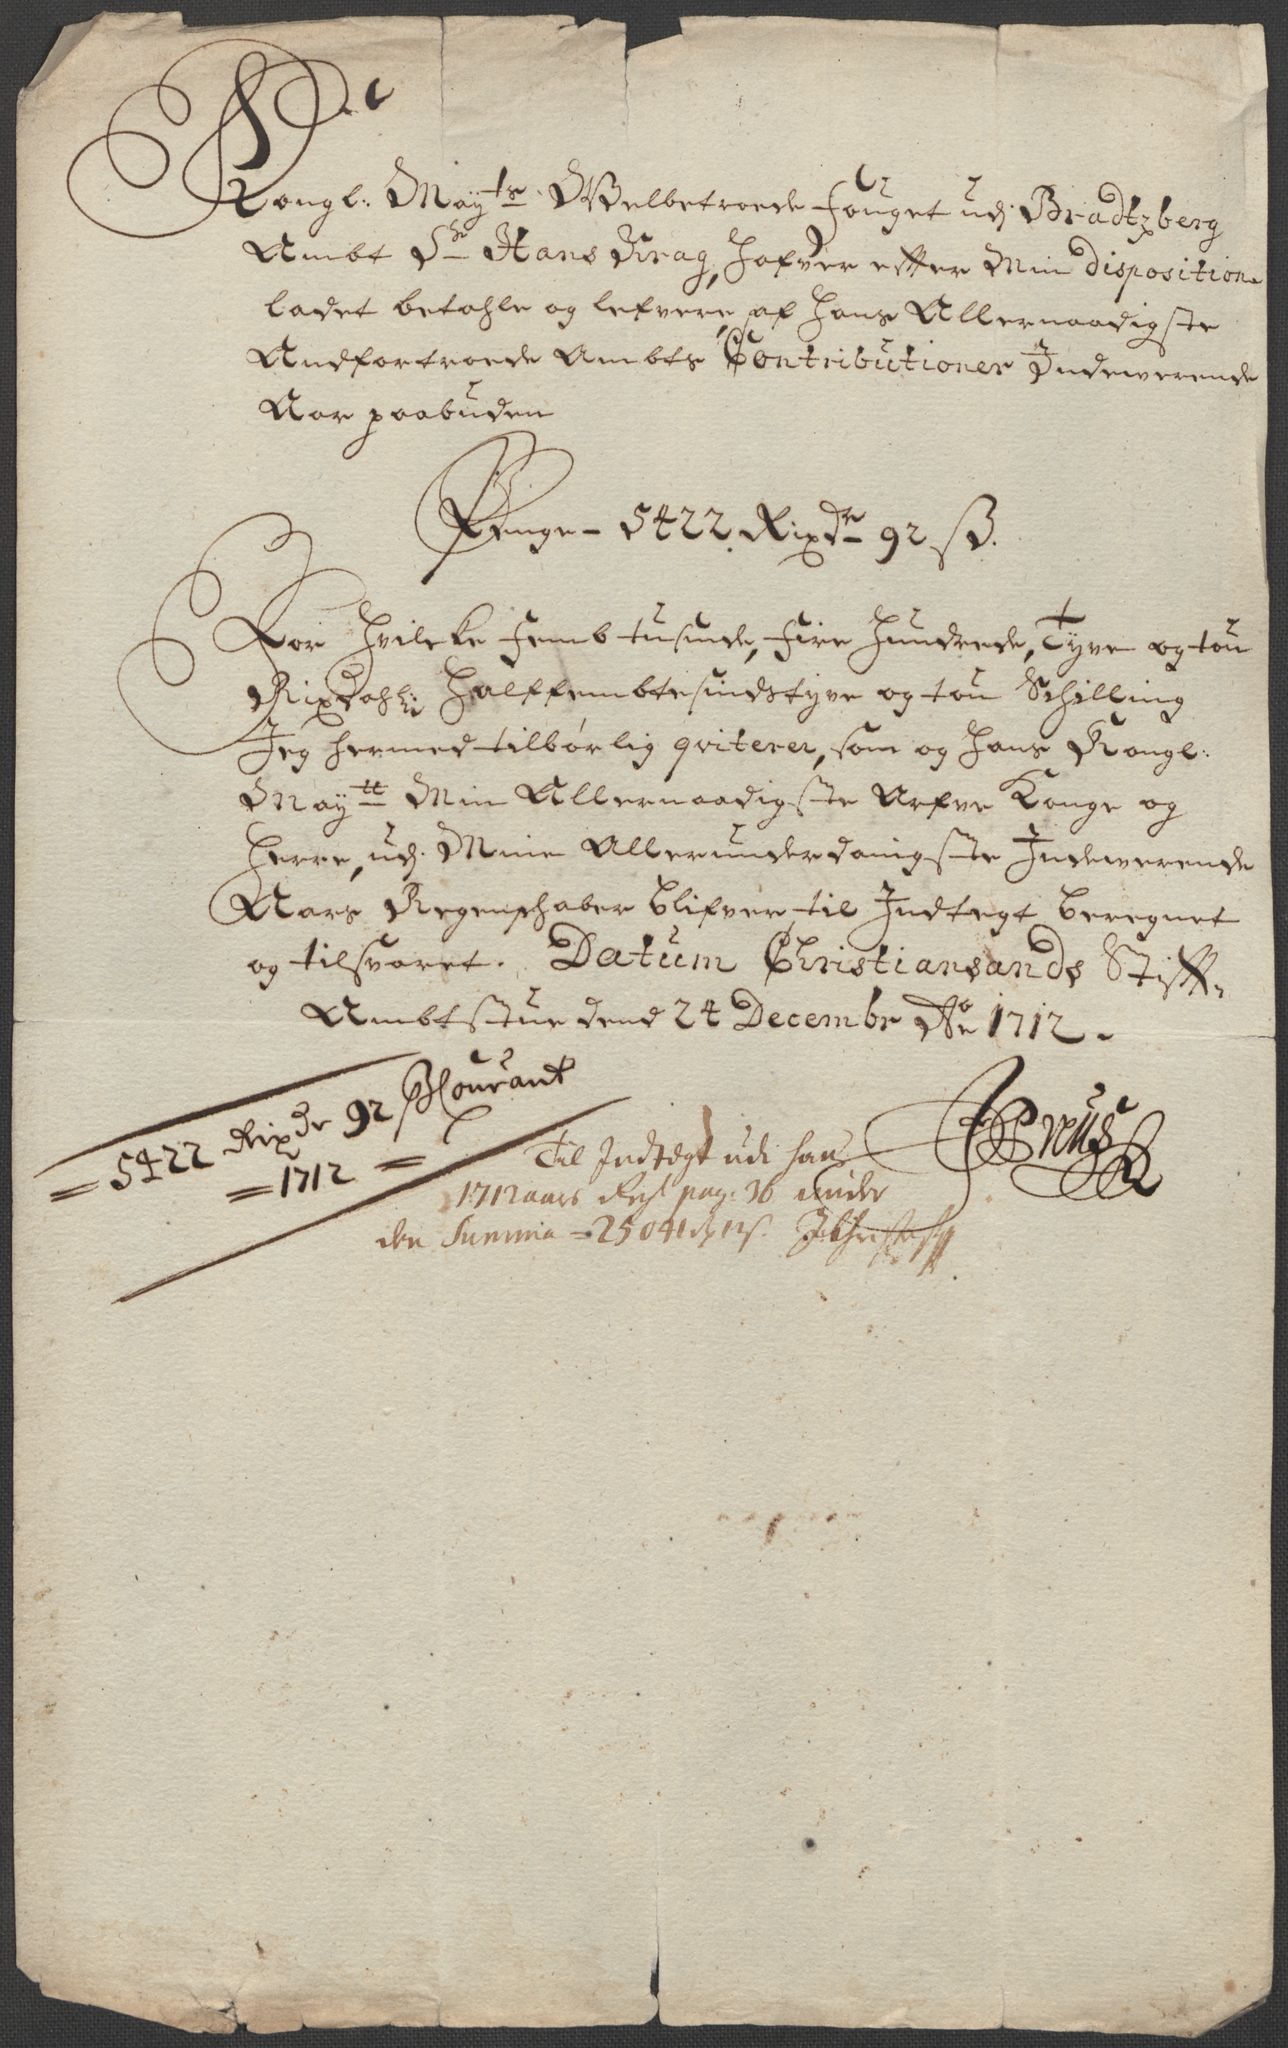 Kongl: May:ts Welbetroede Fouget udj Bradtzberg
Ambt Sr Hans Krag, hafver effter Min disposition
ladet betahle og lefvere, af hans Allernaadigste
Andfortroede Ambts Contributioner Indewerende
Aar paabuden
Penge - 5422. Rixdr 92 ß.
For hvilcke Femb tusinde, Fire hundrede, Tyve og tou
Rixdahl: halffembtesindstyve og tou Schilling
Jeg hermed tilbørlig qviterer, som og hans Kongl:
Maytt Min Allernaadigste Arfve Konge og
Herre, udj Mine Allerunderdanigste Indewerende
Aars Regenschaber blifver til Indtegt beregnet
og tilsvaret. Datum Christiansands Stiff-
Ambtstue dend 24 Decembr Ao 1712.
= 5422 Rixdr 92 ß Courant
= 1712 =
Til Indtegt udi hans
1712 aars Regl pag: 36 under
den Summa = 25041